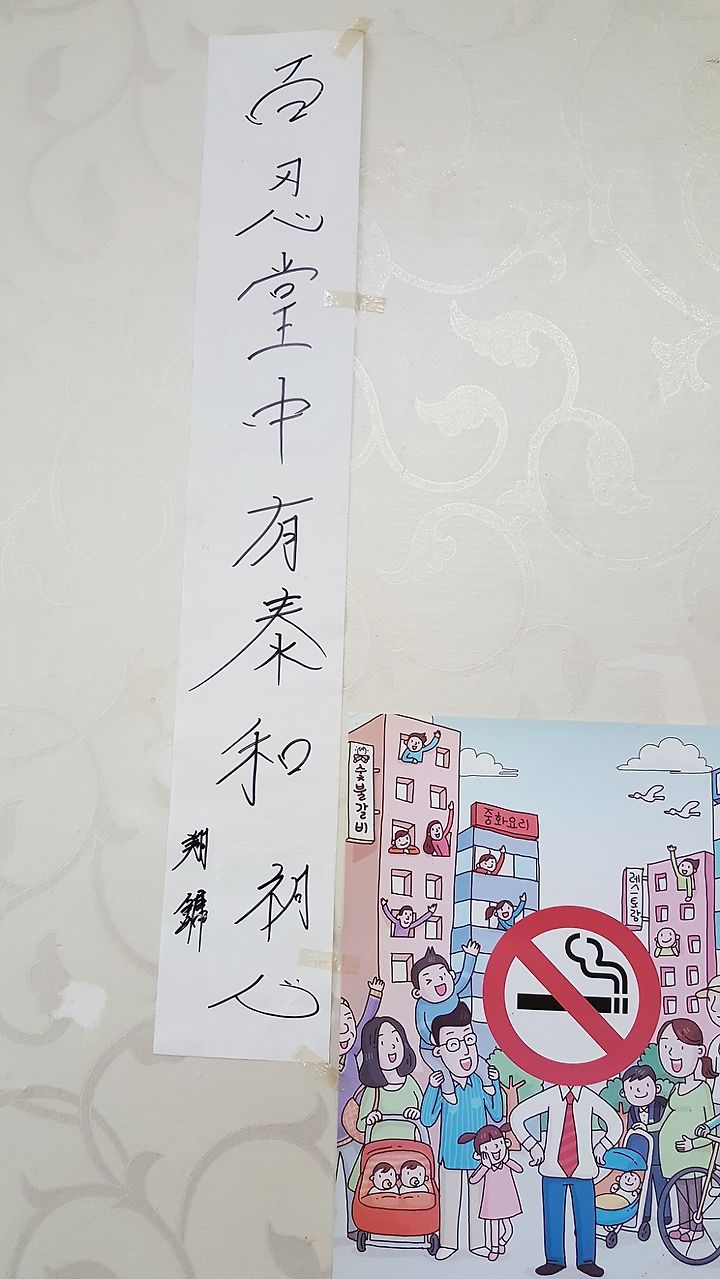 百忍堂中有泰和
初心
숯불갈비
중화요리
레스토랑